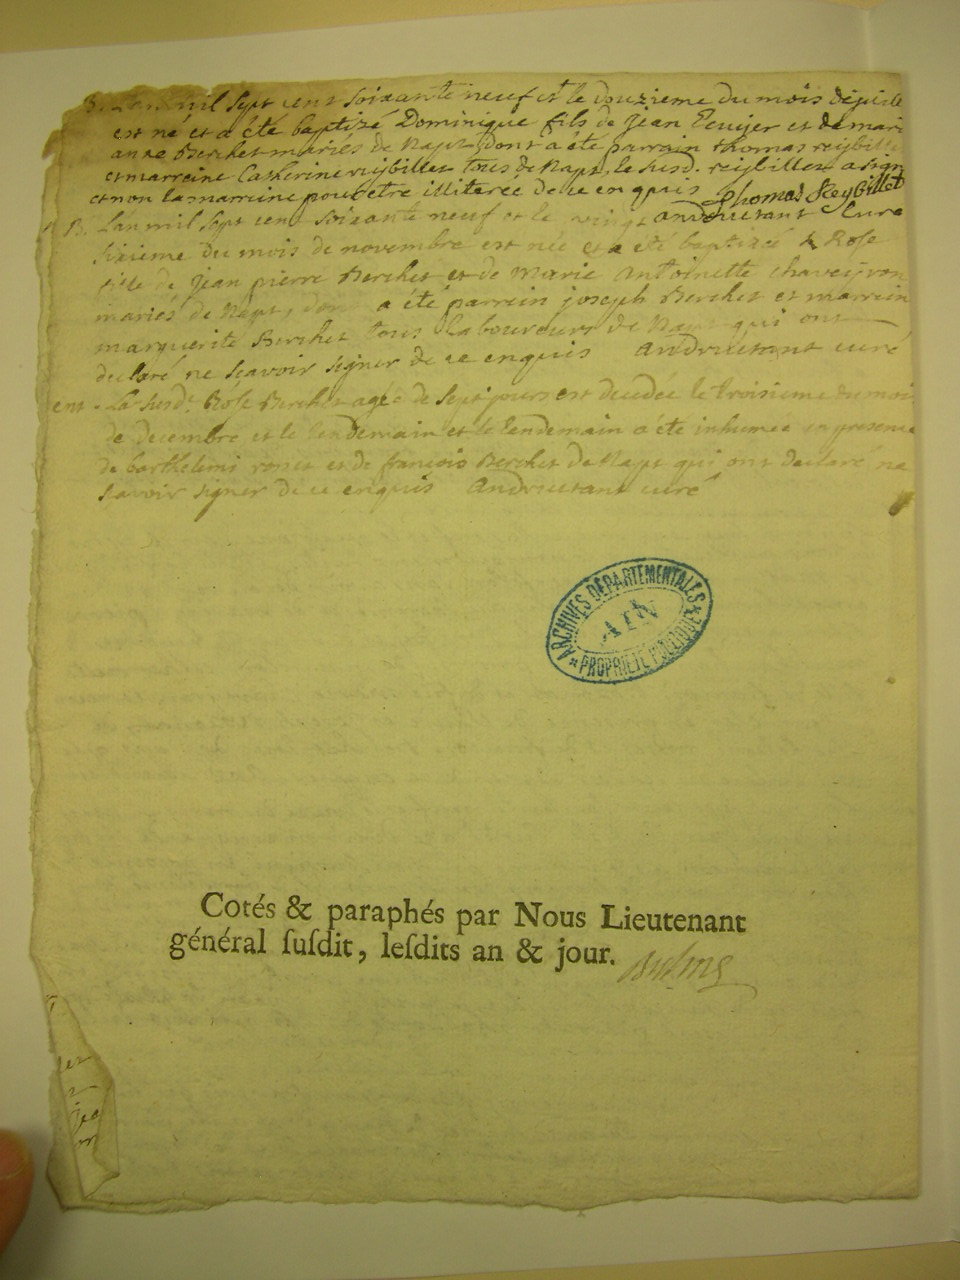 B. L'an mil sept cent soixante neuf et le douzieme du mois
est né et a été baptizé Dominique fils de jean et de marie
anne Berchet mariés de Napt, dont a été parrain thomas reybillet
et marreine Catherine reybillet tous de Napt, le susd. reybillet a signé
et non la marreine pour être illiterée de ce enquis Thomas Reybillet
andruetant Curé
B. L'an mil sept cent soixante neuf et le vingt
sixieme du mois de novembre est née et a été baptizée Rose
fille de jean pierre Berchet et de Marie Antoinette chaveyron
mariés de Napt, dont a été parrein joseph Berchet et marrein
marguerite Berchet tous laboureurs de Napt qui ont
declaré ne scavoir signer de ce enquis Andruetant curé
ent. La susd.e Rose Berchet agée de sept jours est decedée le troisieme du mois
de decembre et le lendemain et le lendemain a été inhumée en presence
de barthelemi ronet et de françois Berchet de Napt qui ont declaré ne
savoir signer de ce enquis Andruetant curé
ARCHIVES DÉPARTEMENTALES
AIN
PROPRIÉTÉ PUBLIQUE
Cotés & paraphés par Nous Lieutenant
général ſuſdit, leſdits an & jour.